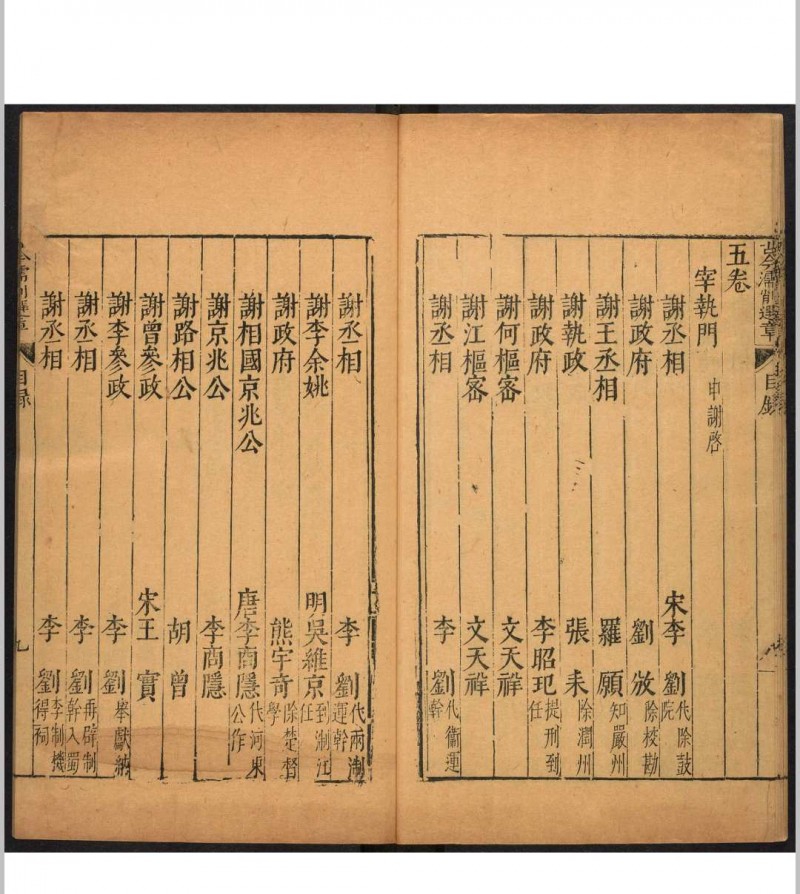 古今濡削選章 目錄
五卷
宰執門 申謝啓
謝丞相 宋李劉 代除鼓院
謝政府 劉攽 除校勘
謝王丞相 羅願 知嚴州
謝執政 張耒 除潤州
謝政府 李昭玘 提刑到任
謝何樞密 文天祥
謝江樞密 文天祥
謝丞相 李劉 代衞運幹
謝丞相 李劉 代兩淛運幹
謝李余姚 明吳維京 到淛江任
謝政府 熊宇奇 除楚督學
謝相國京兆公 唐李商隱 代河東公作
謝京兆公 李商隱
謝路相公 胡曾
謝曾參政 宋王賓
謝李參政 李劉 舉獻納
謝丞相 李劉 再辟制幹入蜀
謝丞相 李劉 李制機得祠
目錄 九